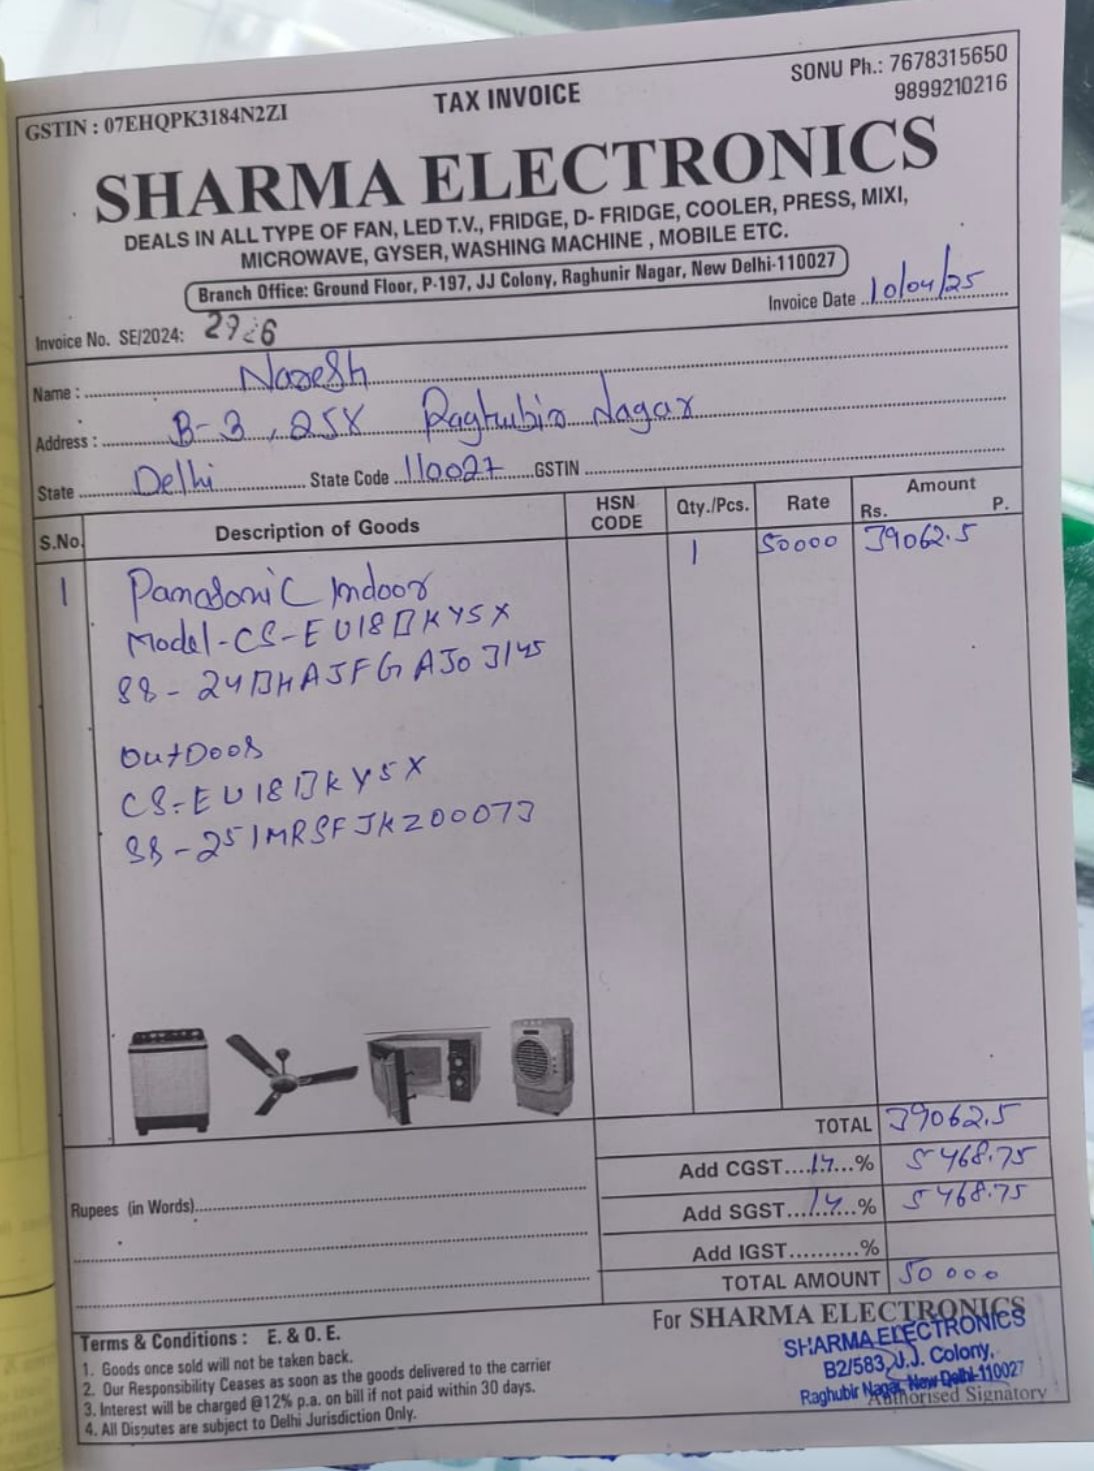 GSTIN : 07EHQPK3184N2ZI
TAX INVOICE
SONU Ph.: 7678315650
9899210216
SHARMA ELECTRONICS
DEALS IN ALL TYPE OF FAN, LED T.V., FRIDGE, D- FRIDGE, COOLER, PRESS, MIXI,
MICROWAVE, GYSER, WASHING MACHINE , MOBILE ETC.
Branch Office: Ground Floor, P-197, JJ Colony, Raghunir Nagar, New Delhi-110027
Invoice No. SE/2024: 2926
Invoice Date 10/04/25
Name : Naresh
Address : B-3 , 258 Raghubir Nagar
State Delhi State Code 110027 GSTIN
S.No. Description of Goods HSN CODE Qty./Pcs. Rate Amount Rs. P.
1 Panasonic Indoor 1 50000 39062.5
Model-CS-EU18BKY5X
SR - 24BHAJFGAJ03145
OutDoor
CS-EU18BKY5X
SR - 251MRSFJKZ00073
TOTAL 39062.5
Add CGST....14...% 5468.75
Rupees (in Words)
Add SGST...14...% 5468.75
Add IGST..........%
TOTAL AMOUNT 50000
Terms & Conditions : E. & O. E.
1. Goods once sold will not be taken back.
2. Our Responsibility Ceases as soon as the goods delivered to the carrier
3. Interest will be charged @12% p.a. on bill if not paid within 30 days.
4. All Disputes are subject to Delhi Jurisdiction Only.
For SHARMA ELECTRONICS
SHARMA ELECTRONICS
B2/583, J.J. Colony,
Raghubir Nagar, New Delhi-110027
Authorised Signatory